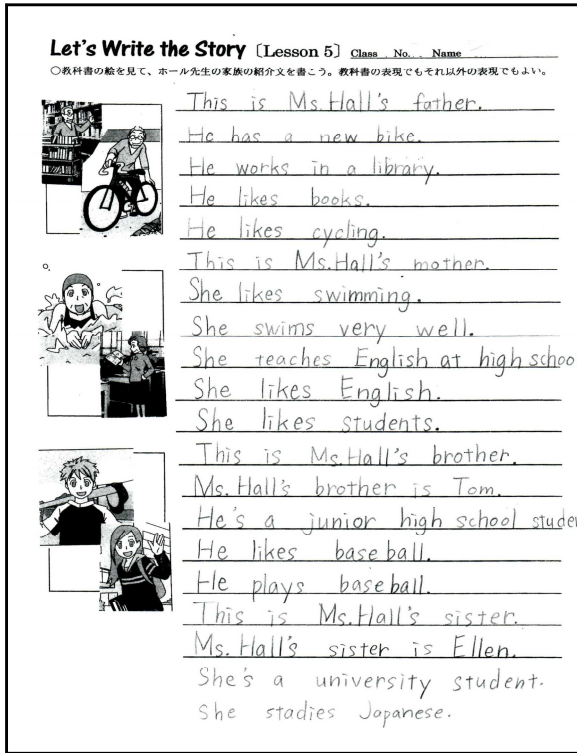 Let's Write the Story〔Lesson 5〕 Class No. Name
○教科書の絵を見て、ホール先生の家族の紹介文を書こう。教科書の表現でもそれ以外の表現でもよい。
This is Ms. Hall's father.
He has a new bike.
He works in a library.
He likes books.
He likes cycling.
This is Ms. Hall's mother.
She likes swimming.
She swims very well.
She teaches English at high schoo
She likes English.
She likes students.
This is Ms. Hall's brother.
Ms. Hall's brother is Tom.
He's a junior high school studen
He likes baseball.
He plays baseball.
This is Ms. Hall's sister.
Ms. Hall's sister is Ellen.
She's a university student.
She stadies Japanese.